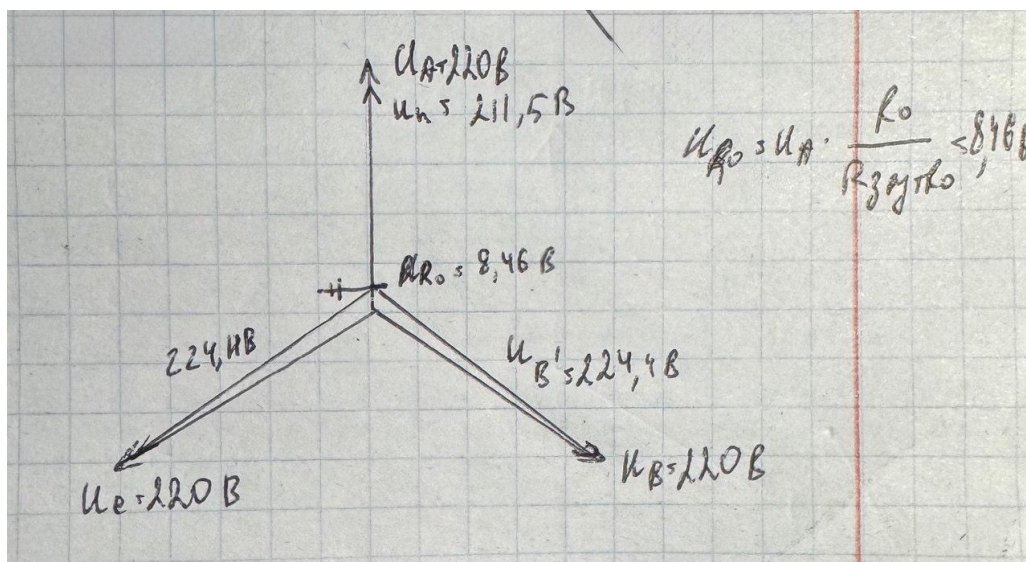 U_A=220В
U_п=211,5В
U_R0=U_A·R0/(Rзм+R0)=8,46В
U_R0=8,46В
224,4В
U_B'=224,4В
U_B=220В
U_c=220В